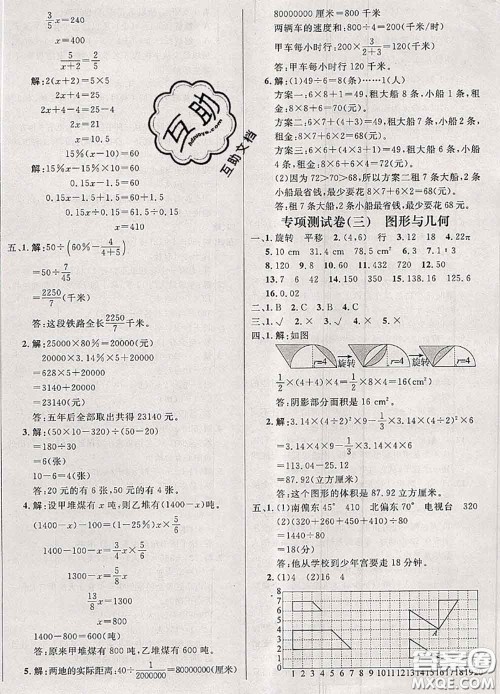 3/5 x=240
x=400
5/(x+2)=2/4
解:2(x+2)=5×5
2x+4=25
2x+4-4=25-4
2x=21
x=10.5
15%(x-10)=60
解:15%x-15%×10=60
0.15x-1.5=60
0.15x=61.5
0.15x÷0.15=61.5÷0.15
x=410
五、1.解:50÷(60%-4/(4+5))
=50÷7/45
=2250/7(千米)
答:这段铁路全长2250/7千米。
2.解:20000×3.14%×5+20000
=628×5+20000
=3140+20000
=23140(元)
答:五年后全部取出共得23140元。
3.解:(50×10-320)÷(50-20)
=180÷30
=6(张)
10-6=4(张)
答:20元的有6张,50元的有4张。
4.解:设甲堆煤有x吨,则乙堆有(1400-x)吨。
(1400-x)=(1-25%)x×5/6
1400-x=3/4x×5/6
1400-x=5/8x
13/8x=1400
x=
1400-800=600(吨)
答:原来甲堆煤有800吨,乙堆煤有600吨。
5.解:两地的实际距离:40÷1/2000000=80000000(厘米)
80000000厘米=800千米
两辆车的速度和:800÷4=200(千米)
甲车每小时行:200×3/(2+3)=120(千米)
答:甲车每小时行120千米。
6.解:(1)49÷6=8(条)……1(人)
方案一:6×8+1=49,租大船8条,小船1条,租金:8×8+7×1=71(元)
(2)因为71>70,所以方案二租大船7条,小船2条最省钱,最少要花70元。
答:租大船7条,小船2条最省钱,最少要花70元。
专项测试卷(三) 图形与几何
一、1.旋转 平移 2.(4,6) 行 3.12 18 4.22π
5.10 cm 31.4 cm 78.5 cm² 6.35 7.216
8.120 9.圆 10.8 11.60 12.35 15 60
13.7 6 42 14.68 160 96 15.138.16 125.6
16.0.02
二、1.B 2.C
三、1.√ 2.× 3.× 4.√ 5.×
四、1.解:如图
旋转
r=4
旋转
r=4
1/2×(4+4)×4=1/2×8×4=16(cm²)
答:阴影部分面积是16 cm²。
2.解:3.14×(4÷2)²×9-1/3×3.14×(4÷2)²×6
=3.14×4×9-1/3×3.14×4×6
=3.14×28
=87.92(立方厘米)
答:这个图形的体积是87.92立方厘米。
五、1.(1)南偏东45° 410 北偏东70° 电视台 320
=18(分)
答:他从学校到少年宫要走18分钟。
2.(1)4 (2)16 4
8
7
6
5
4
3
2
1
A
0 1 2 3 4 5 6 7 8 9 10 11 12 13 14 15 16 17 18 19
互助
互助文档
答案圈
MXQE.COM